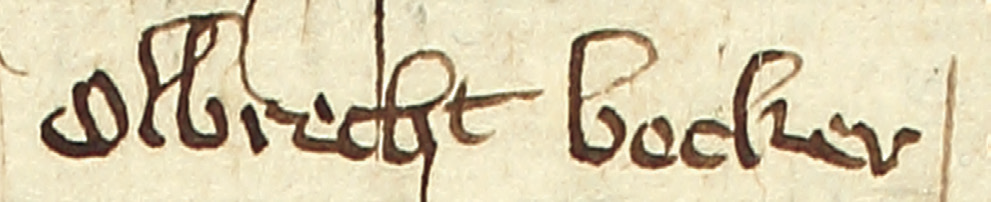 Olbrecht bocker